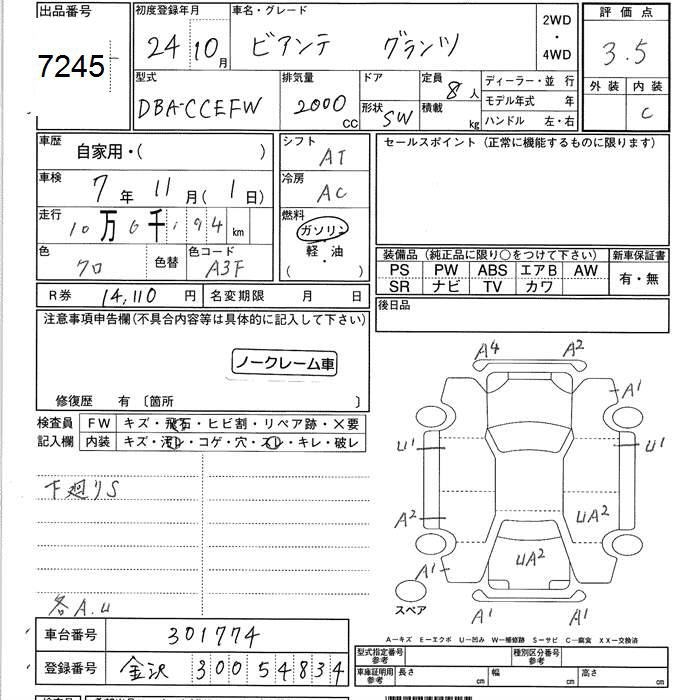 出品番号
7245
初度登録年月
24 10月
車名・グレード
ビアンテ グランツ
2WD
・
4WD
評価点
3.5
外装 内装
C
型式
DBA-CCEFW
排気量
2000
CC
ドア
形状 SW
定員 8人
積載 kg
ディーラー・並 行
モデル年式 年
ハンドル 左・右
車歴
自家用・( )
車検
7年 11月( 1日)
走行
10万6千194km
色
クロ
色替
色コード
A3F
シフト
AT
冷房
AC
燃料
ガソリン
・
軽・油
( )
セールスポイント (正常に機能するものに限ります)
装備品 (純正品に限り○をつけて下さい)
PS PW ABS エアB AW
SR ナビ TV カワ
新車保証書
有・無
R券 14,110円
名変期限 月 日
後日品
注意事項申告欄(不具合内容等は具体的に記入して下さい)
ノークレーム車
修復歴 有 〔箇所 〕
検査員
記入欄
FW キズ・飛石・ヒビ割・リペア跡・×要
内装 キズ・汚レ・コゲ・穴・スレ・キレ・破レ
下廻りS
各A.U
A4 A2
A1
U1 U1
A2
UA2
UA2
A1
A1 A1
スペア
A―キズ E―エクボ U―凹み W―補修跡 S―サビ C―腐食 XX―交換済
車台番号
301774
登録番号
金沢 300 54834
型式指定番号
参考
種別区分番号
参考
車庫証明用
参考
長さ cm
幅 cm
高さ cm